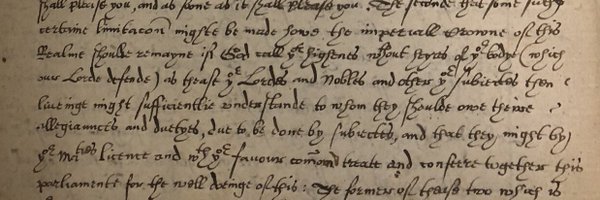 shall please you, and as sone as it shall please you. The seconde that some suche
certaine limitacon might be made howe the imperiall Crowne of this
Realme shoulde remayne if God call yor highenes wthout heyres of yor bodye (which
our Lorde defende) as theast yor Lordes and Nobles and other yor subiectes then
livinge might sufficientlie understande to whom they shoulde owe theire
allegiaunces and duetyes, due to be done by subiectes, and that they might by
yor Maties licence and wth yor favour comon treate and conferre together this
parliamente for the well doinge of this: The former of thease two which is